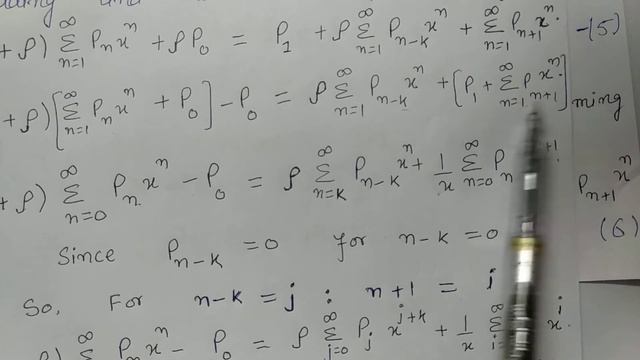 +ρ) ∑_{n=1}^{∞} P_n x^n + ρP_0 = P_1 + ρ ∑_{n=1}^{∞} P_{n-k} x^n + ∑_{n=1}^{∞} P_{n+1} x^n. -(5)
+ρ) [∑_{n=1}^{∞} P_n x^n + P_0] - P_0 = ρ ∑_{n=1}^{∞} P_{n-k} x^n + [P_1 + ∑_{n=1}^{∞} P_{n+1} x^n.]
ming
+ρ) ∑_{n=0}^{∞} P_n x^n - P_0 = ρ ∑_{n=k}^{∞} P_{n-k} x^n + 1/x ∑_{n=0}^{∞} P_n
P_{n+1} x^n
Since P_{n-k} = 0 for n-k = 0 (6)
So, For n-k = j : n+1 = i
∑^{∞} P_n x^n - P_0 = ρ ∑_{j=0}^{∞} P_j x^{j+k} + 1/x ∑^{∞} x^i.